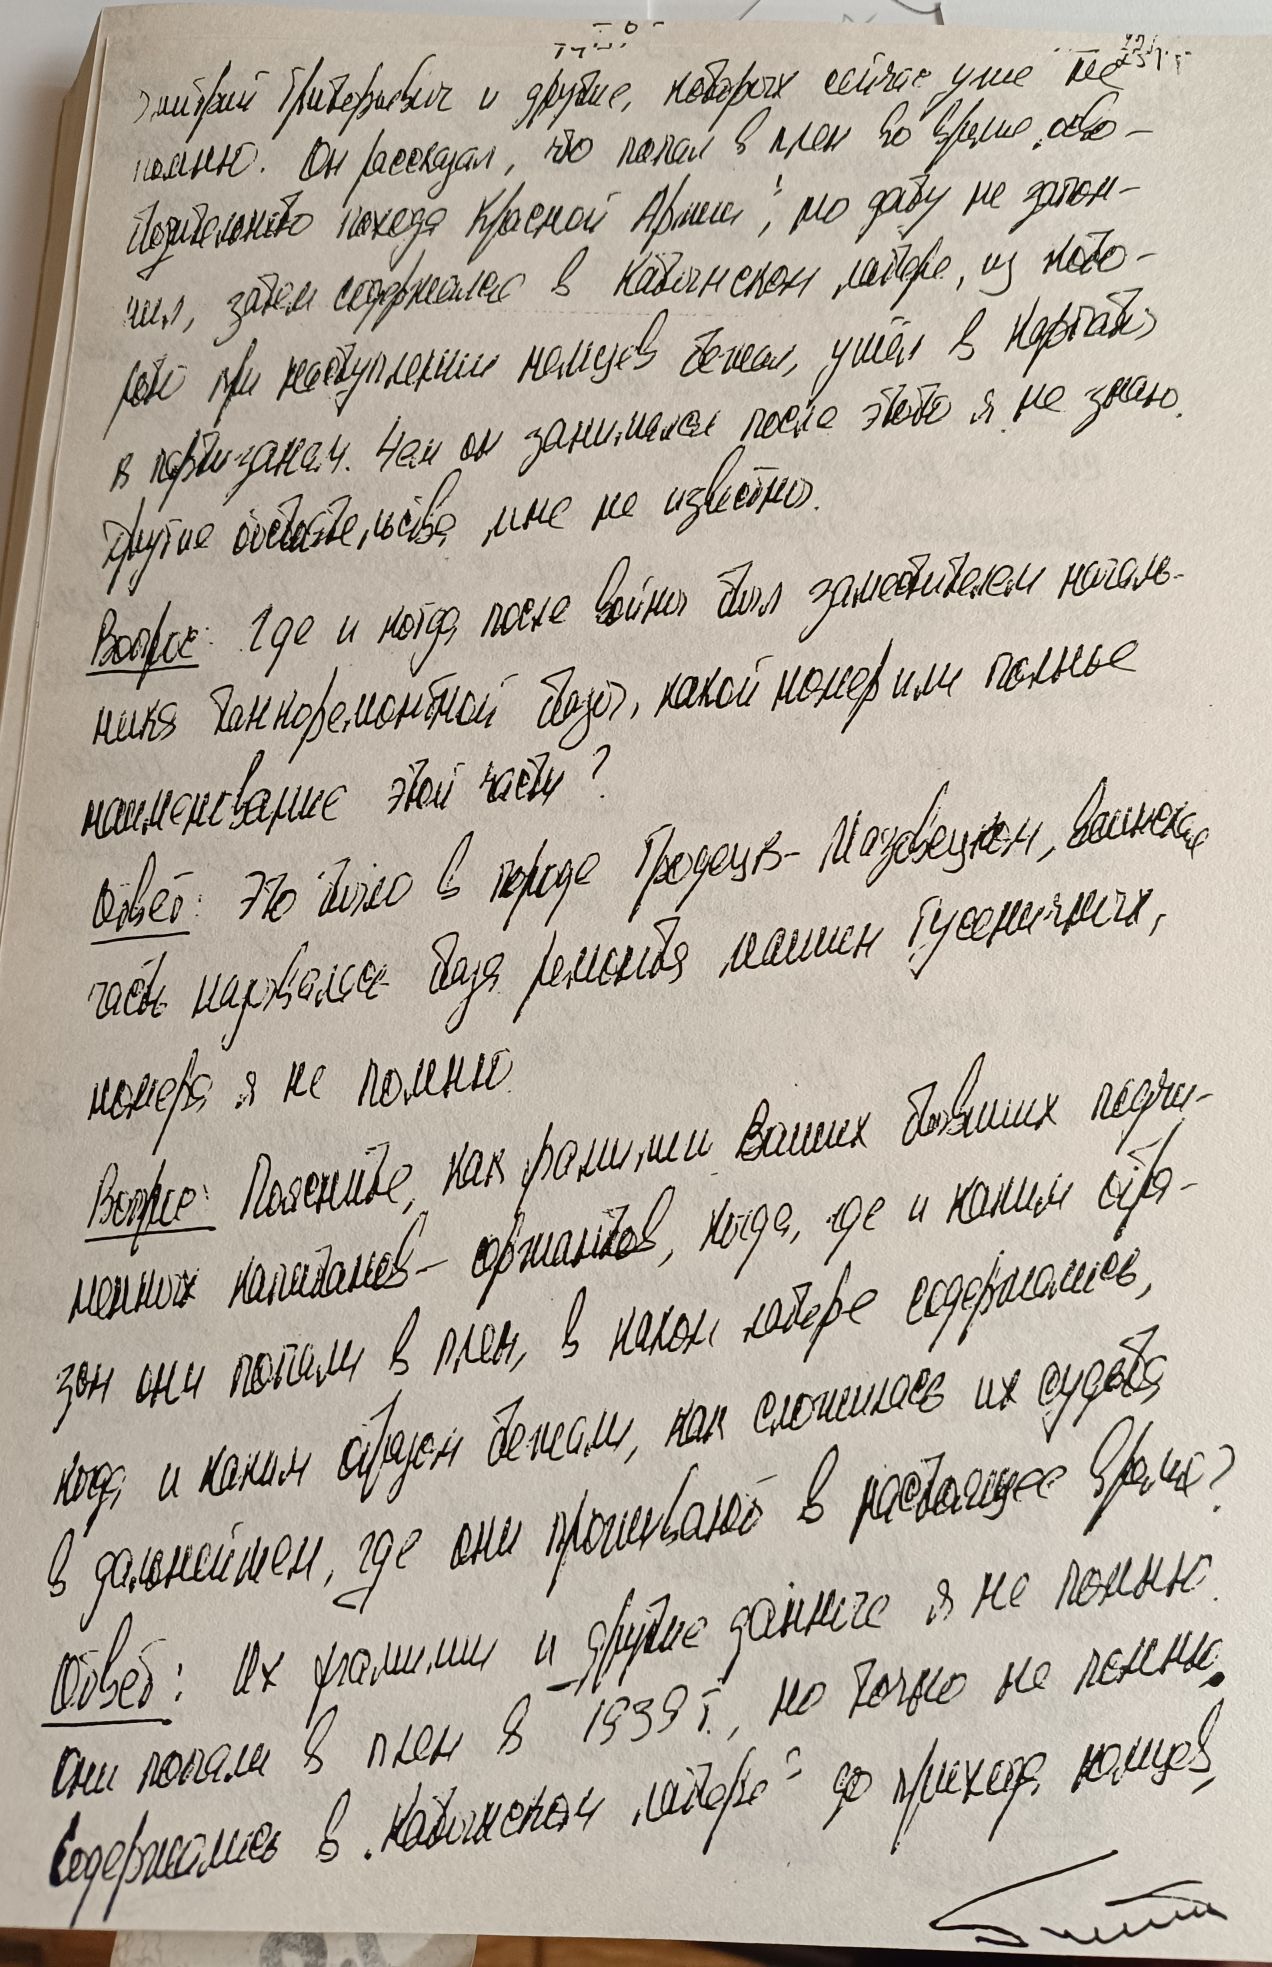 Дмитрий Григорьевич и другие, которых сейчас уже не
помню. Он рассказал, что попал в плен во время „осво-
бодительного похода Красной Армии“, но дату не запом-
нил, затем содержался в Кабынском лагере, из кото-
рого при наступлении немцев бежал, ушёл в Карпаты
к партизанам. Чем он занимался после этого я не знаю.
Другие обстоятельства мне не известны.
Вопрос: Где и когда после войны был заместителем началь-
ника танкоремонтной базы, какой номер или полное
наименование этой части?
Ответ: Это было в городе Гродецк-Мазовецком, воинская
часть называлась база ремонта машин гусеничных,
номера я не помню.
Вопрос: Поясните, как фамилии Ваших бывших подчи-
ненных капитанов-сержантов, когда, где и каким обра-
зом они попали в плен, в каком лагере содержались,
когда и каким образом бежали, как сложилась их судьба
в дальнейшем, где они проживают в настоящее время?
Ответ: Их фамилии и другие данные я не помню.
Они попали в плен в 1939 г., но точно не помню,
содержались в „Кабынском лагере“ до прихода немцев,